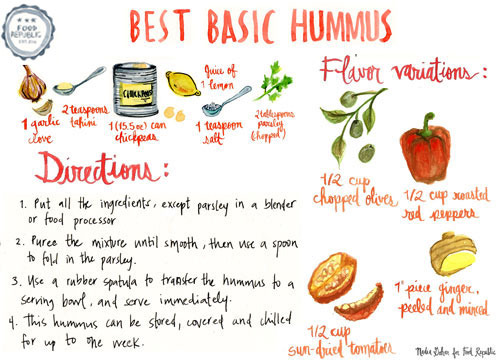 BEST BASIC HUMMUS
FOOD
REPUBLIC
1 garlic
clove
2 teaspoons
tahini
CHICKPEAS
1 (15.5 oz) can
chickpeas
Juice of
1 lemon
1 teaspoon
salt
2 tablespoons
parsley
(chopped)
Directions:
1. Put all the ingredients, except parsley in a blender
or food processor
2. Puree the mixture until smooth, then use a spoon
to fold in the parsley.
3. Use a rubber spatula to transfer the hummus to a
serving bowl, and serve immediately.
4. This hummus can be stored, covered and chilled
for up to one week.
Flavor variations:
1/2 cup
chopped olives
1/2 cup roasted
red peppers
1/2 cup
sun-dried tomatoes
1" piece ginger,
peeled and minced
for Food Republic